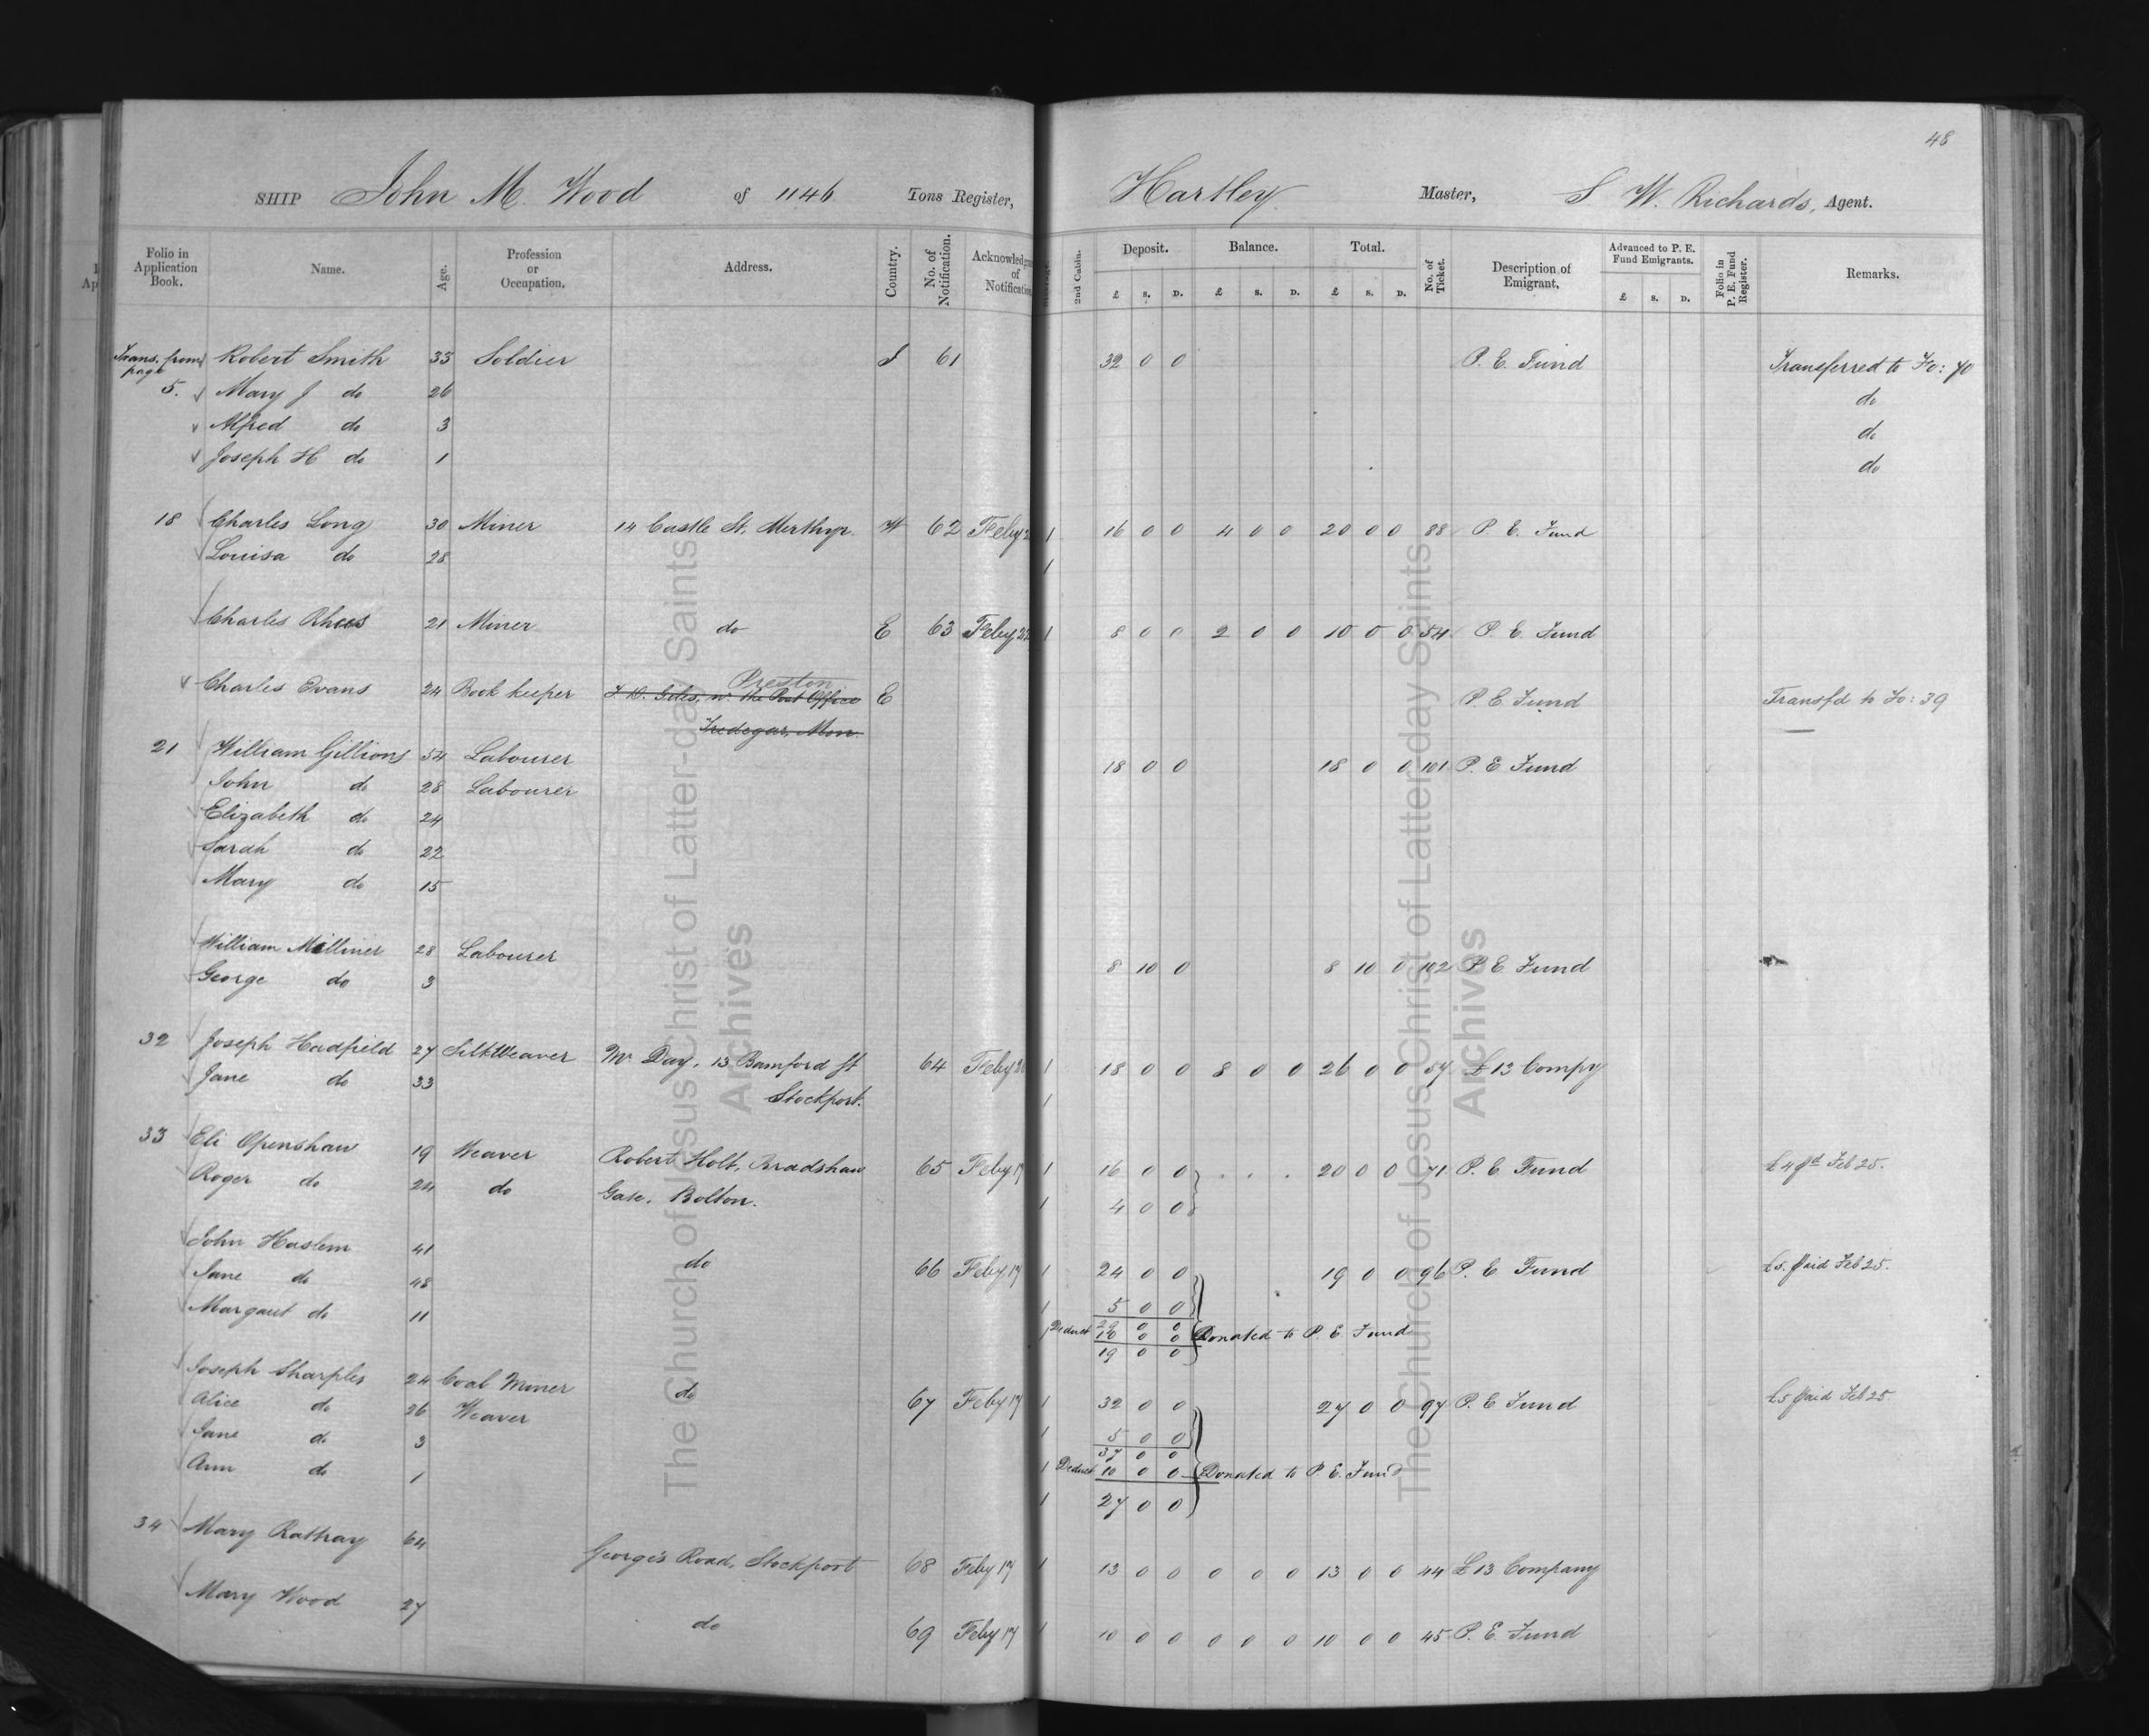 48
SHIP John M. Wood of 1146 Tons Register, Hartley Master, S W. Richards, Agent.
Folio in Application Book. Name. Age. Profession or Occupation. Address. Country. No. of Notification. Acknowledgm of Notification 2nd Cabin. Deposit. £ s. D. Balance. £ s. D. Total. £ s. D. No. of Ticket. Description of Emigrant. Advanced to P. E. Fund Emigrants. £ s. D. Folio in P. E. Fund Register. Remarks.
Trans. from page 5. Robert Smith 33 Soldier S 61 32 0 0 P. E. Fund Transferred to Fo: 70
Mary J do 26 do
Alfred do 3 do
Joseph H do 1 do
18 Charles Long 30 Miner 14 Castle St, Merthyr. W 62 Feby 1 16 0 0 4 0 0 20 0 0 88 P. E. Fund
Louisa do 28 1
Charles Rhees 21 Miner do E 63 Feby 22 1 8 0 0 2 0 0 10 0 0 54 P. E. Fund
Preston
Charles Evans 24 Book keeper J. D. Giles, nr. the Post Office E P. E. Fund Transfd to Fo: 39
Tredegar, Mon.
21 William Gillions 54 Labourer 18 0 0 18 0 0 101 P. E Fund
John do 28 Labourer
Elizabeth do 24
Sarah do 22
Mary do 15
William Milliner 28 Labourer 8 10 0 8 10 0 102 P. E Fund
George do 3
32 Joseph Hadfield 27 Silk Weaver Mr Day, 13 Bamford St 64 Feby 20 1 18 0 0 8 0 0 26 0 0 57 £13 Compy
Jane do 33 Stockport. 1
33 Eli Openshaw 19 Weaver Robert Holt, Bradshaw 65 Feby 17 1 16 0 0 . . . 20 0 0 71 P. E Fund £4 pd Feb 25.
Roger do 24 do Gate, Bolton. 1 4 0 0
John Haslem 41 do 66 Feby 17 1 24 0 0 19 0 0 96 P. E Fund £5. paid Feb 25.
Jane do 48 1 5 0 0
Margaret do 11 1 29 0 0
Deduct 10 0 0 Donated to P. E Fund
19 0 0
Joseph Sharples 24 Coal Miner do 67 Feby 17 1 32 0 0 27 0 0 97 P. E Fund £5 paid Feb 25
Alice do 26 Weaver 1 5 0 0
Jane do 3 37 0 0
Ann do 1 1 Deduct 10 0 0 Donated to P. E. Fund
1 27 0 0
34 Mary Rathay 64 George's Road, Stockport 68 Feby 17 1 13 0 0 0 0 0 13 0 0 44 £13 Company
Mary Wood 27 do 69 Feby 17 1 10 0 0 0 0 0 10 0 0 45 P. E. Fund
The Church of Jesus Christ of Latter-day Saints
Archives
The Church of Jesus Christ of Latter-day Saints
Archives